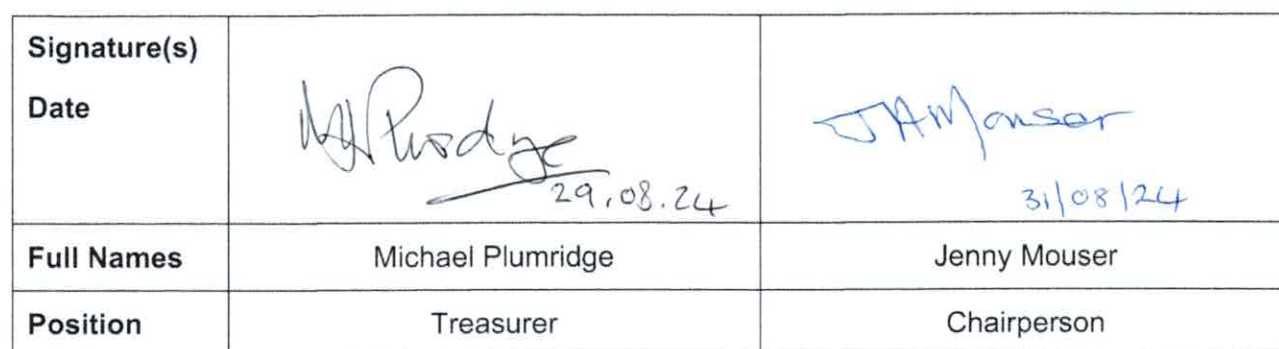 Signature(s)
Date
29.08.24
JAMouser
31/08/24
Full Names Michael Plumridge Jenny Mouser
Position Treasurer Chairperson